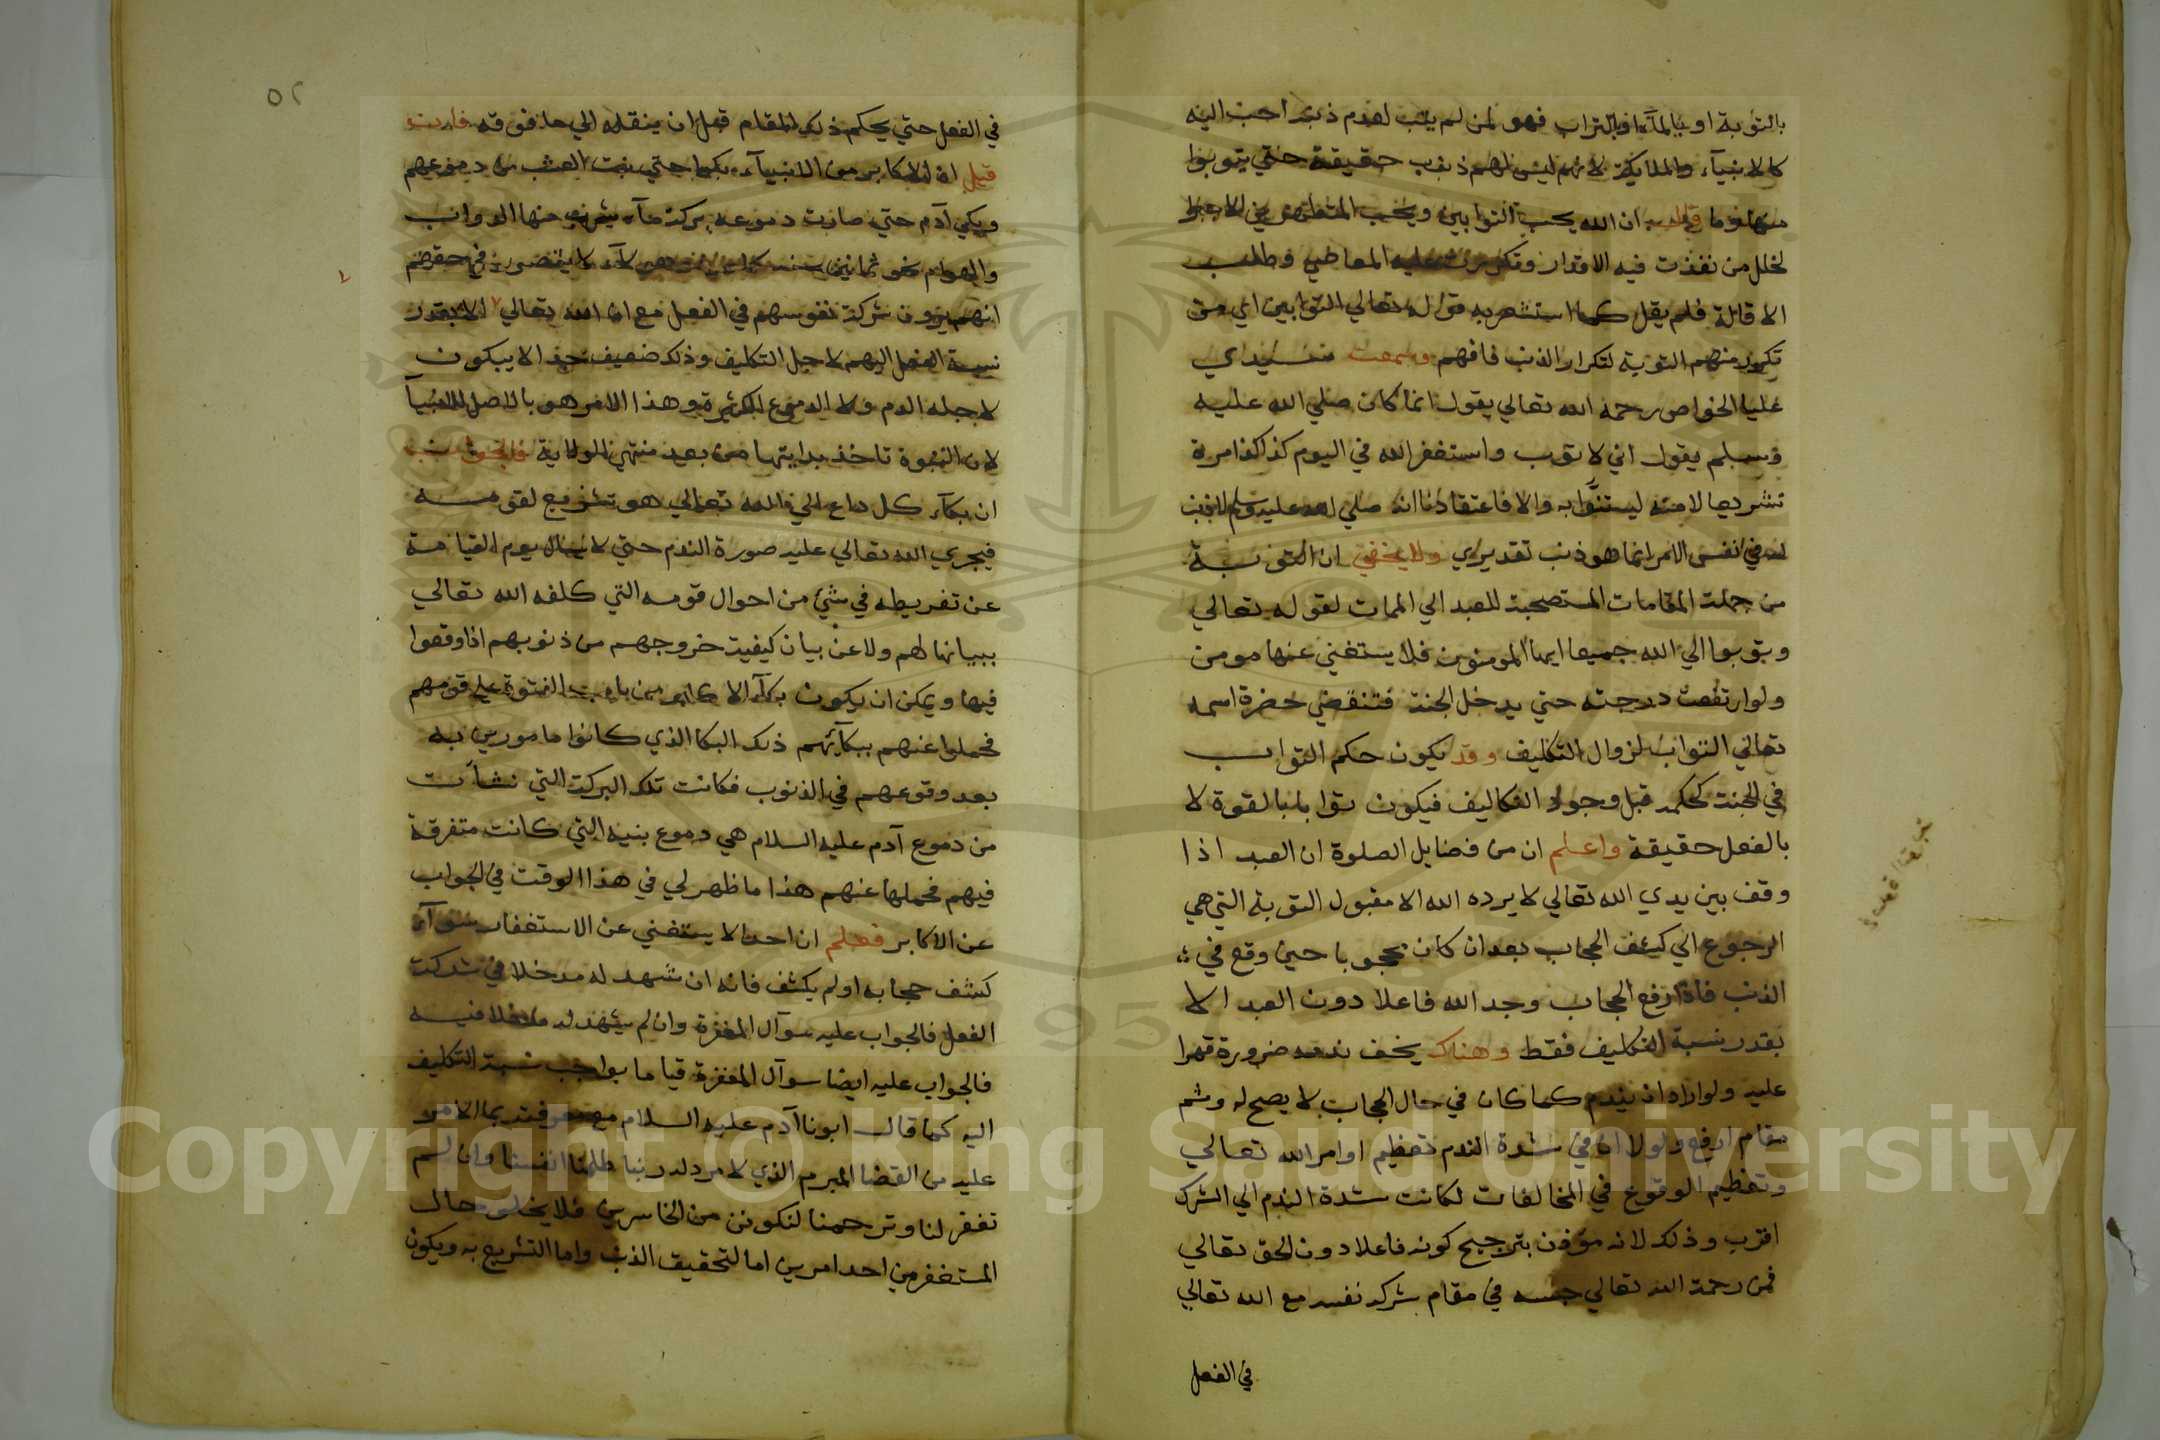 بالتوبة او بالماء او بالتراب فهو لمن لم يتب لعدم ذنبه احب اليه
كالانبياء والملايكة لانهم ليس لهم ذنب حقيقة حتي يتوبوا
منها وما ان الله يحب التوابين ويحب المتطهرين الا جبرا
لخلل من نفذت فيه الاقدار وتكررت عليه المعاصي وطلب
الاقالة فلم يقل كما استشعر به قوله تعالي التوابين اي من
تكرر منهم التوبة لتكرار الذنب فافهم وسمعت سيدي
عليا الخواص رحمه الله تعالي يقول انما كان صلي الله عليه
وسلم يقول اني لاتوب واستغفر الله في اليوم كذا كذا مرة
تشريعا لامته ليستنوا به والا فاعتقادنا انه صلي الله عليه وسلم لا ذنب
له في نفس الامر انما هو ذنب تقديري ولا يخفي ان التوبة
من جملة المقامات المستصحبة للعبد الي الممات لقوله تعالي
وتوبوا الي الله جميعا ايها المومنون فلا يستغني عنها مومن
ولو ارتفعت درجته حتي يدخل الجنة فتنقضي حضرة اسمه
تعالي التواب لزوال التكليف وقد يكون حكم التواب
في الجنة كحكمه قبل وجود التكاليف فيكون توابا بالقوة لا
بالفعل حقيقة واعلم ان من فضايل الصلوة ان العبد اذا
وقف بين يدي الله تعالي لا يرده الله الا مقبول التوبة التي هي
الرجوع الي كشف الحجاب بعد ان كان محجوبا حين وقع في
الذنب فاذا رفع الحجاب وجد الله فاعلا دون العبد الا
بقدر نسبة التكليف فقط وهناك يخف ندمه ضرورة قهرا
عليه ولو اراد ان يندم كما كان في حال الحجاب لا يصح له وثم
مقام ارفع ولولا ان في شدة الندم تعظيم اوامر الله تعالي
وتعظيم الوقوع في المخالفات لكانت شدة الندم الي الشرك
اقرب وذلك لانه مؤذن بترجيح كونه فاعلا دون الحق تعالي
فمن رحمة الله تعالي حبسه في مقام شركه نفسه مع الله تعالي
في الفعل
٥٢
في الفعل حتي يحكم ذلك المقام قبل ان ينقله الي ما فوقه فان
قيل ان الاكابر من الانبياء بكوا حتي نبت العشب من دموعهم
وبكي آدم حتي صارت دموعه بركة ماء يشرب منها الدواب
والهوام نحو ثمانين سنة لا يقصون في حقهم
انهم يرون شركة نفوسهم في الفعل مع ان الله تعالي الا بقدر
نسبة الفعل اليهم لاجل التكليف وذلك ضعيف جدا لا يبكون
لاجله الدم ولا الدموع الكثيرة وهذا الامر هو بالاصل للانبيآ
لان النبوة تاخذ بدايتها من بعد منتهي الولاية فالجواب
ان بكاء كل داع الي الله تعالي هو تشريع لقومه
فيجري الله تعالي عليه صورة الندم حتي لا يسال يوم القيامة
عن تفريطه في شيء من احوال قومه التي كلفه الله تعالي
ببيانها لهم ولا عن بيان كيفية خروجهم من ذنوبهم اذا وقعوا
فيها ويمكن ان يكون بكآء الاكابر من باب الفتوة علي قومهم
فحملوا عنهم ببكآئهم ذلك البكا الذي كانوا مامورين به
بعد وقوعهم في الذنوب فكانت تلك البركة التي نشات
من دموع آدم عليه السلام هي دموع بنيه التي كانت متفرقة
فيهم فحملها عنهم هذا ما ظهر لي في هذا الوقت في الجواب
عن الاكابر فعلم ان احدا لا يستغني عن الاستغفار سوآء
كشف حجابه او لم يكشف فانه ان شهد له مدخلا في شركة
الفعل فالجواب عليه سوآل المغفرة وان لم يشهد له مدخلا فيه
فالجواب عليه ايضا سوآل المغفرة قياما بواجب نسبة التكليف
اليه كما قال ابونا آدم عليه السلام مع معرفته بما الامر
عليه من القضا المبرم الذي لا مرد له ربنا ظلمنا انفسنا وان لم
تغفر لنا وترحمنا لنكونن من الخاسرين فلا يخلو حال
المستغفر من احد امرين اما لتحقيق الذنب واما التشريع به ويكون
Copyright © King Saud University